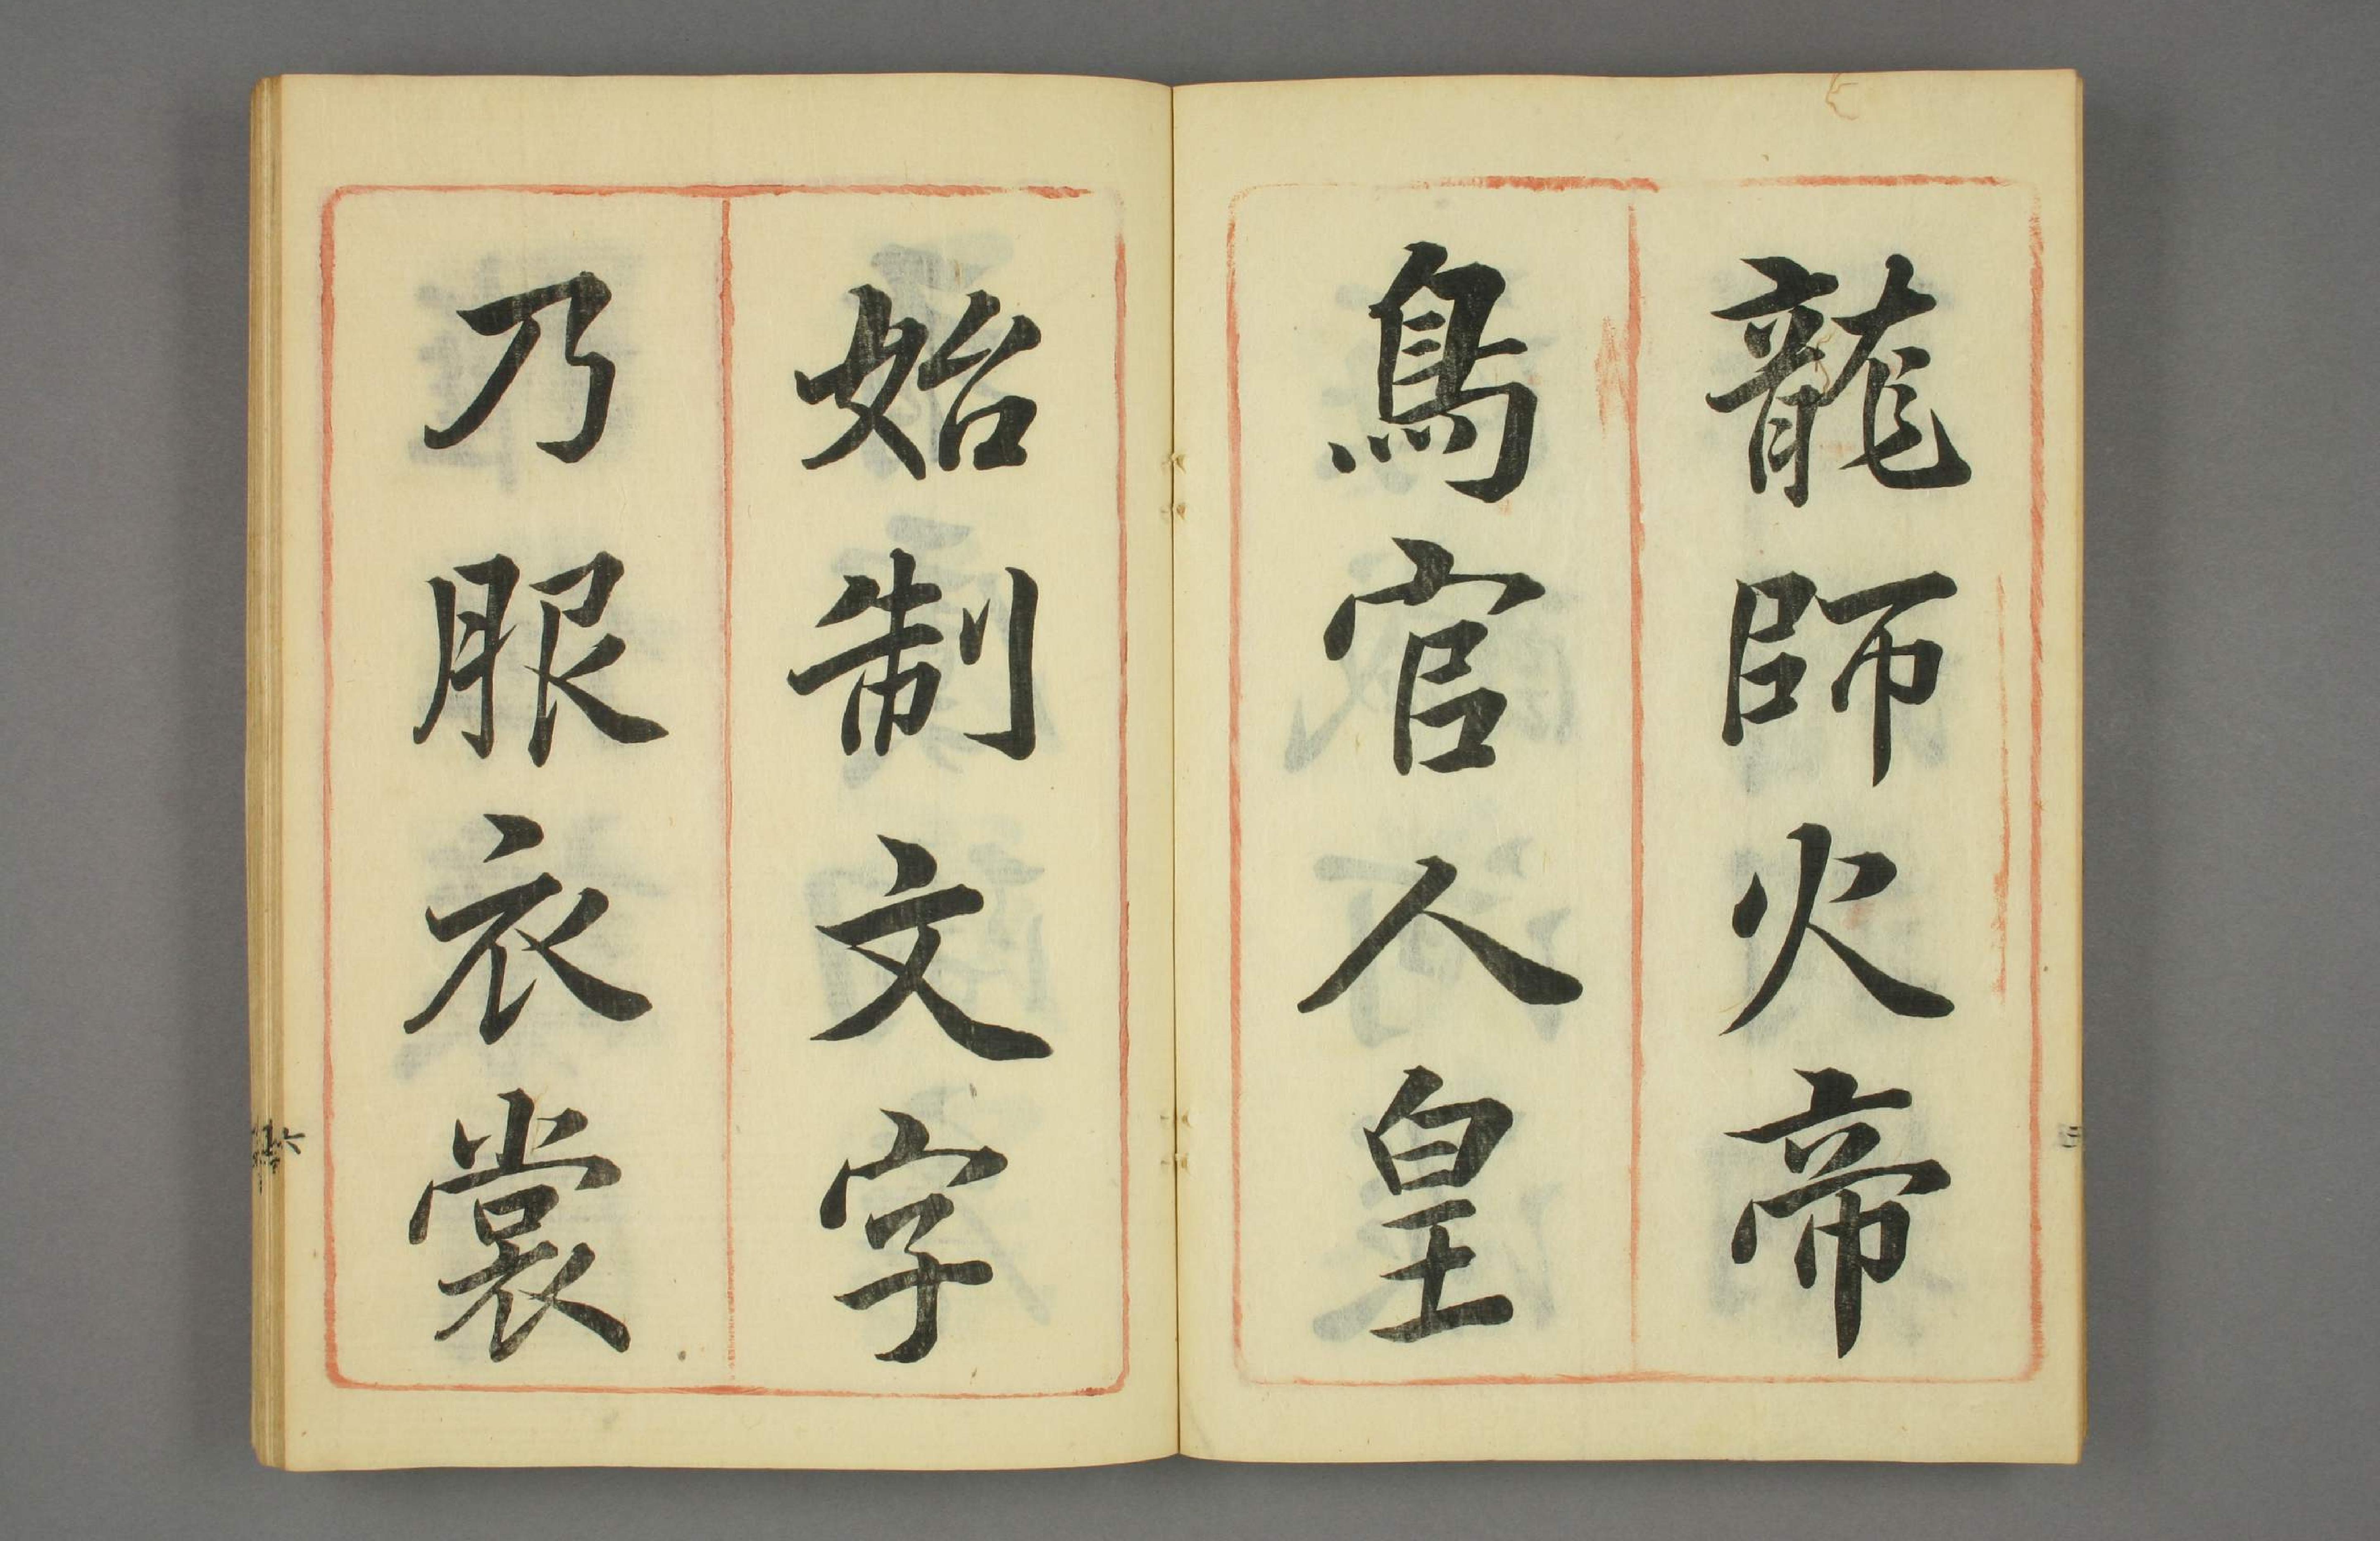 龍師火帝
鳥官人皇
始制文字
乃服衣裳
六